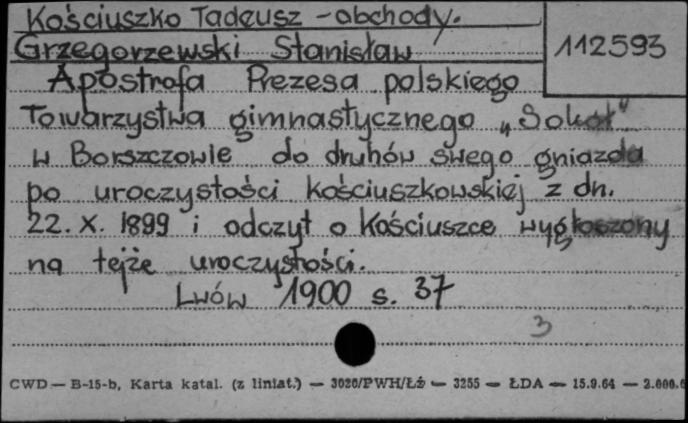 Kościuszko Tadeusz - obchody.
Grzegorzewski Stanisław
112593
Apostrofa Prezesa polskiego
Towarzystwa gimnastycznego „Sokół”
w Borszczowie do druhów swego gniazda
po uroczystości kościuszkowskiej z dn.
22. X. 1899 i odczyt o Kościuszce wygłoszony
na tejże uroczystości.
Lwów 1900 s. 37
3
CWD — B-15-b, Karta katal. (z liniat.) — 3020/PWH/Łż — 3255 — ŁDA — 15.9.64 — 2.000.0